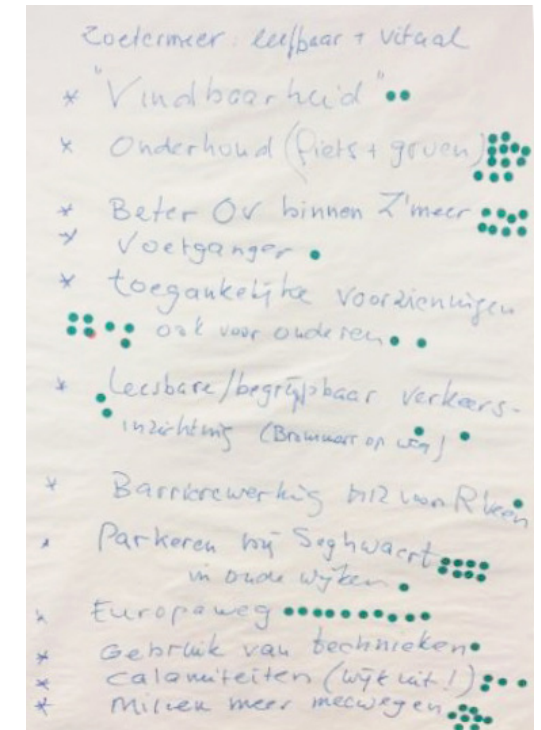 Zoetermeer: leefbaar + vitaal
* "Vindbaarheid"
* Onderhoud (fiets + groen)
* Beter OV binnen Z'meer
* Voetganger
* toegankelijke voorzieningen
ook voor ouderen
* Leesbare/begrijpbaar verkeers-
inrichting (Brommers op weg)
* Barrièrewerking A12
* Parkeren bij Seghwaert
in oude wijken
* Europaweg
* Gebruik van technieken
* Calamiteiten (wijk uit!)
* Milieu meer meewegen